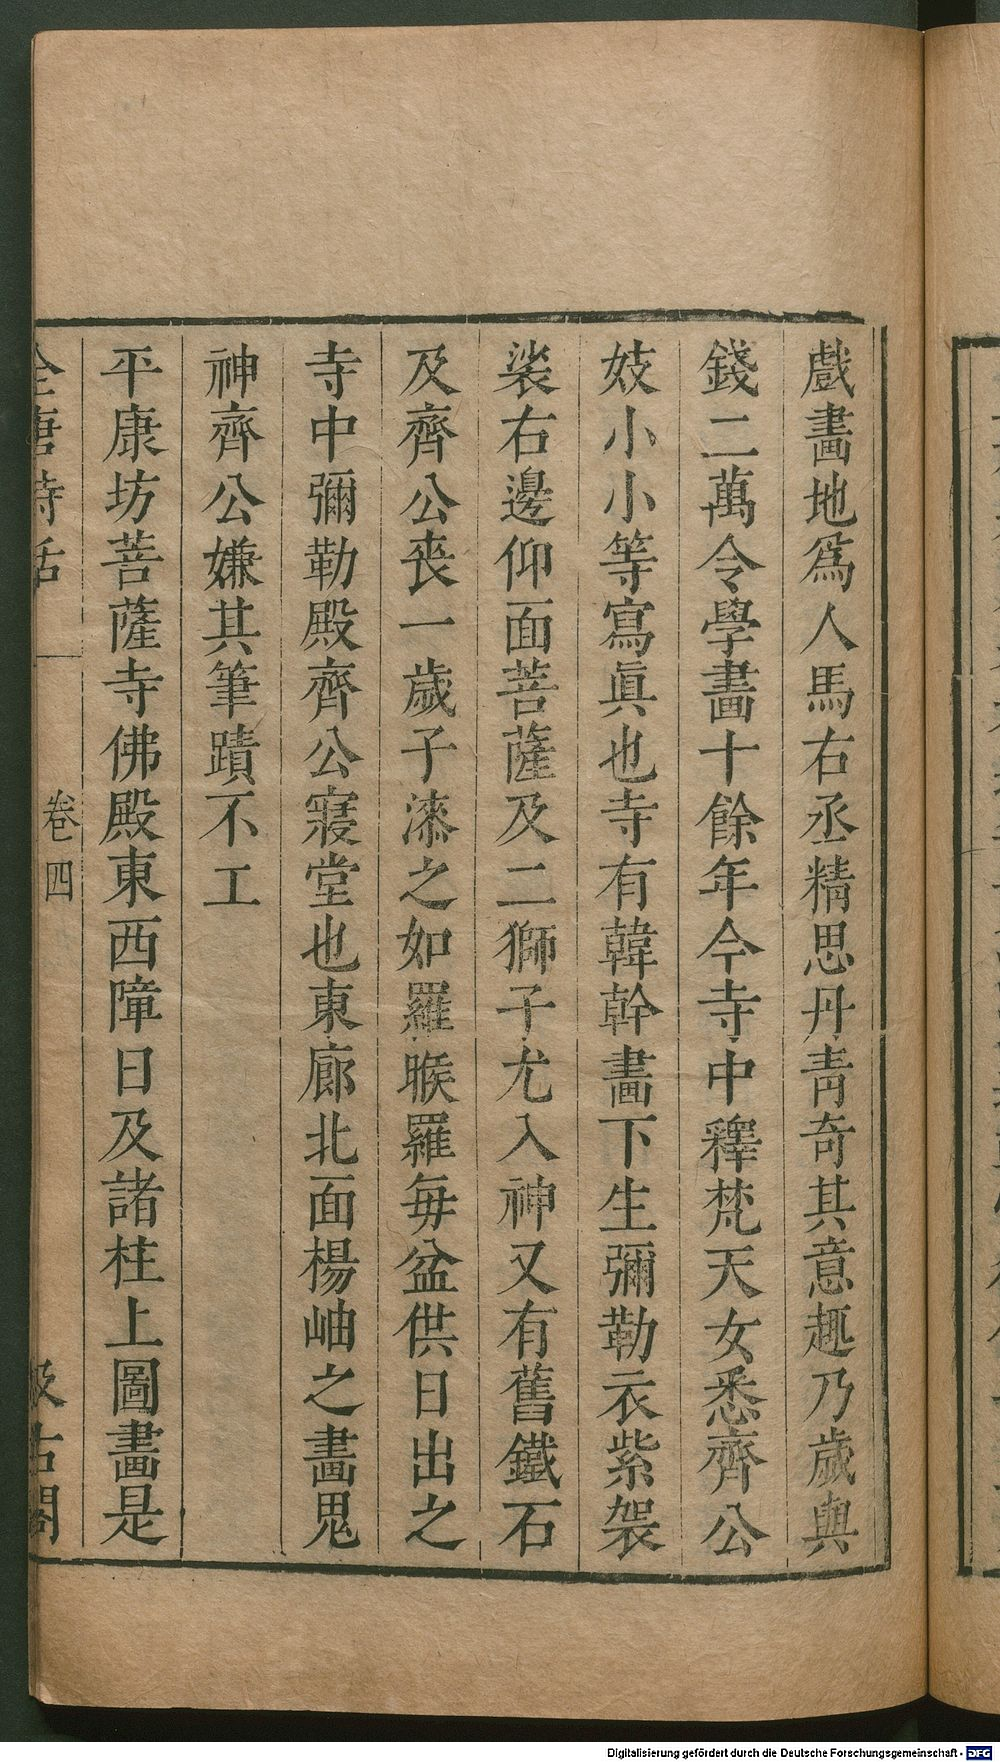 戲畵地爲人馬右丞精思丹青奇其意趣乃歲與
錢二萬令學畵十餘年今寺中釋梵天女悉齊公
妓小小等寫眞也寺有韓幹畵下生彌勒衣紫袈
裟右邊仰面菩薩及二獅子尤入神又有舊鐵石
及齊公丧一歲子漆之如羅睺羅每盆供日出之
寺中彌勒殿齊公寢堂也東廊北面楊岫之畵鬼
神齊公嫌其筆蹟不工
平康坊菩薩寺佛殿東西障日及諸柱上圖畵是
全唐詩話
卷四
汲古閣
Digitalisierung gefördert durch die Deutsche Forschungsgemeinschaft - DFG